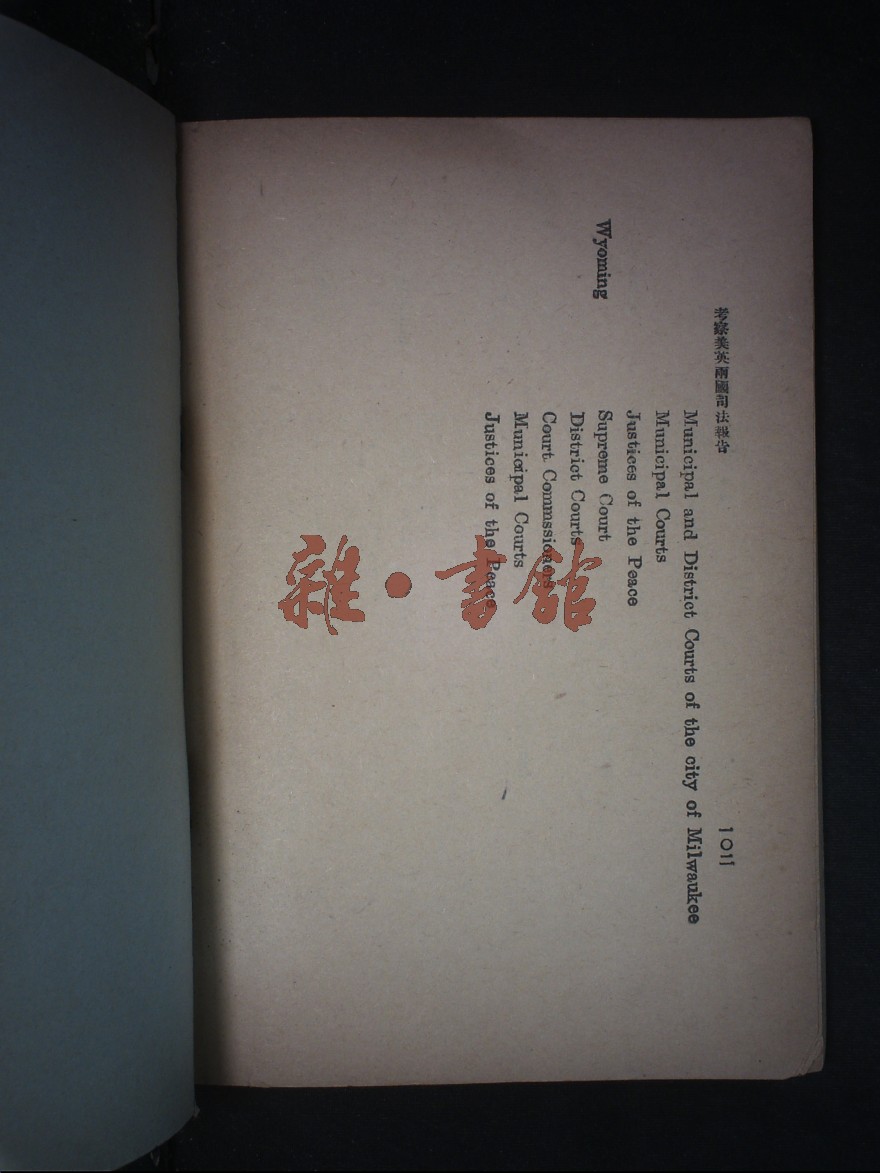 考察美英兩國司法報告
一〇二
Municipal and District Courts of the city of Milwaukee
Municipal Courts
Justices of the Peace
Wyoming
Supreme Court
District Courts
Court Commssioners
Municipal Courts
Justices of the Peace
雜·書館